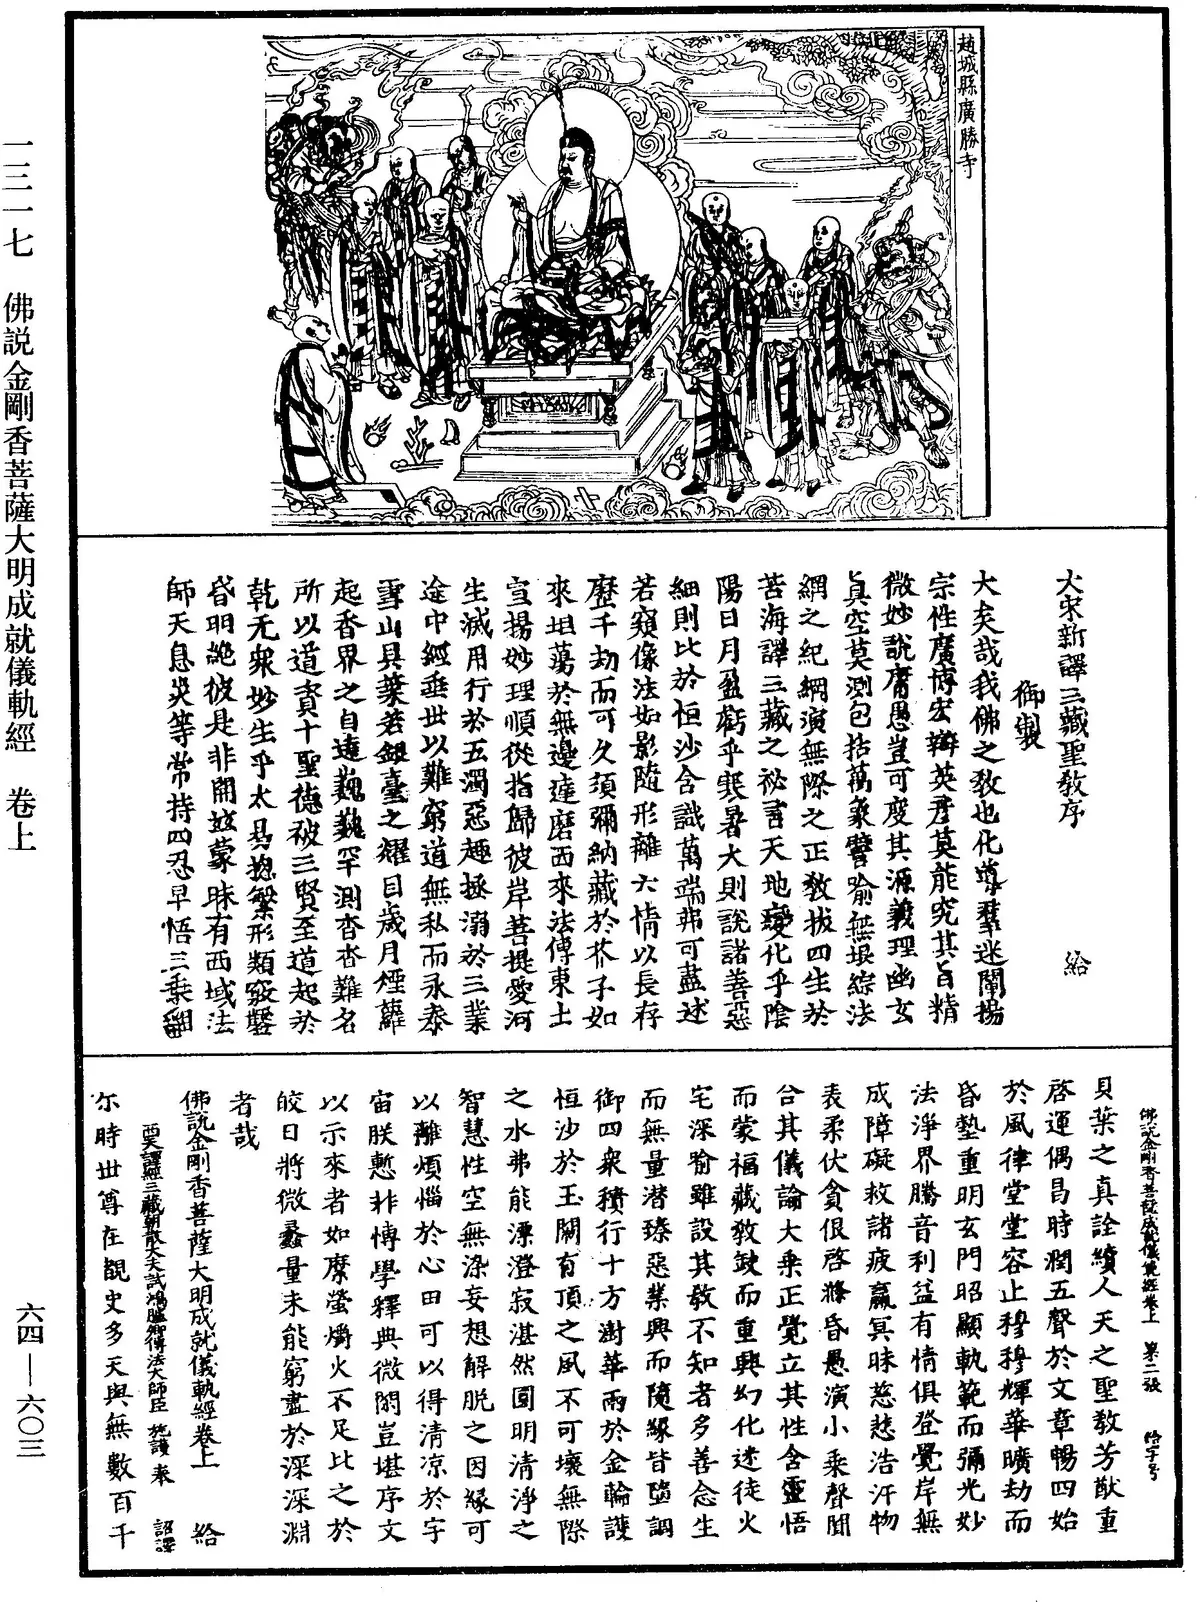 趙城縣廣勝寺
大宋新譯三藏聖教序 給
御製
大矣哉我佛之教也化導羣迷闡揚
宗性廣博宏辯英彥莫能究其旨精
微妙說庸愚豈可度其源義理幽玄
真空莫測包括萬象譬喻無垠綜法
網之紀綱演無際之正教拔四生於
苦海譯三藏之祕言天地變化乎陰
陽日月盈虧乎寒暑大則說諸善惡
細則比於恒沙含識萬端弗可盡述
若窺像法如影隨形離六情以長存
歷千劫而可久須彌納藏於芥子如
來坦蕩於無邊達磨西來法傳東土
宣揚妙理順從指歸彼岸菩提愛河
生滅用行於五濁惡趣拯溺於三業
途中經垂世以難窮道無私而永泰
雪山貝葉若銀臺之耀目歲月煙蘿
起香界之自遠巍巍罕測杳杳難名
所以道資十聖德被三賢至道起於
乾元衆妙生乎太易揔繁形類竅鑿
昏明絶彼是非開茲蒙昧有西域法
師天息災等常持四忍早悟三乘翻
佛說金剛香菩薩成就儀軌經卷上 第二張 給字号
貝葉之真詮續人天之聖教芳猷重
啓運偶昌時潤五聲於文章暢四始
於風律堂堂容止穆穆輝華曠劫而
昏墊重明玄門昭顯軌範而彌光妙
法淨界騰音利益有情俱登覺岸無
成障礙救諸疲羸冥昧慈悲浩汗物
表柔伏貪佷啓滌昏愚演小乘聲聞
合其儀論大乘正覺立其性含靈悟
而蒙福藏教缺而重興幻化迷徒火
宅深喻雖設其教不知者多善念生
而無量潜臻惡業興而隨緣皆墮調
御四衆積行十方澍華雨於金輪護
恒沙於玉闕有頂之風不可壞無際
之水弗能漂澄寂湛然圓明清淨之
智慧性空無染妄想解脫之因緣可
以離煩惱於心田可以得清凉於宇
宙朕慙非博學釋典微閑豈堪序文
以示來者如縻螢爝火不足比之於
皎日將微蠡量未能窮盡於深淵
者哉
佛說金剛香菩薩大明成就儀軌經卷上 給
西天譯經三藏朝散大夫試鴻臚卿傳法大師臣 施護 奉 詔譯
尒時世尊在覩史多天與無數百千
一三一七 佛説金剛香菩薩大明成就儀軌經 卷上
六四—六〇三